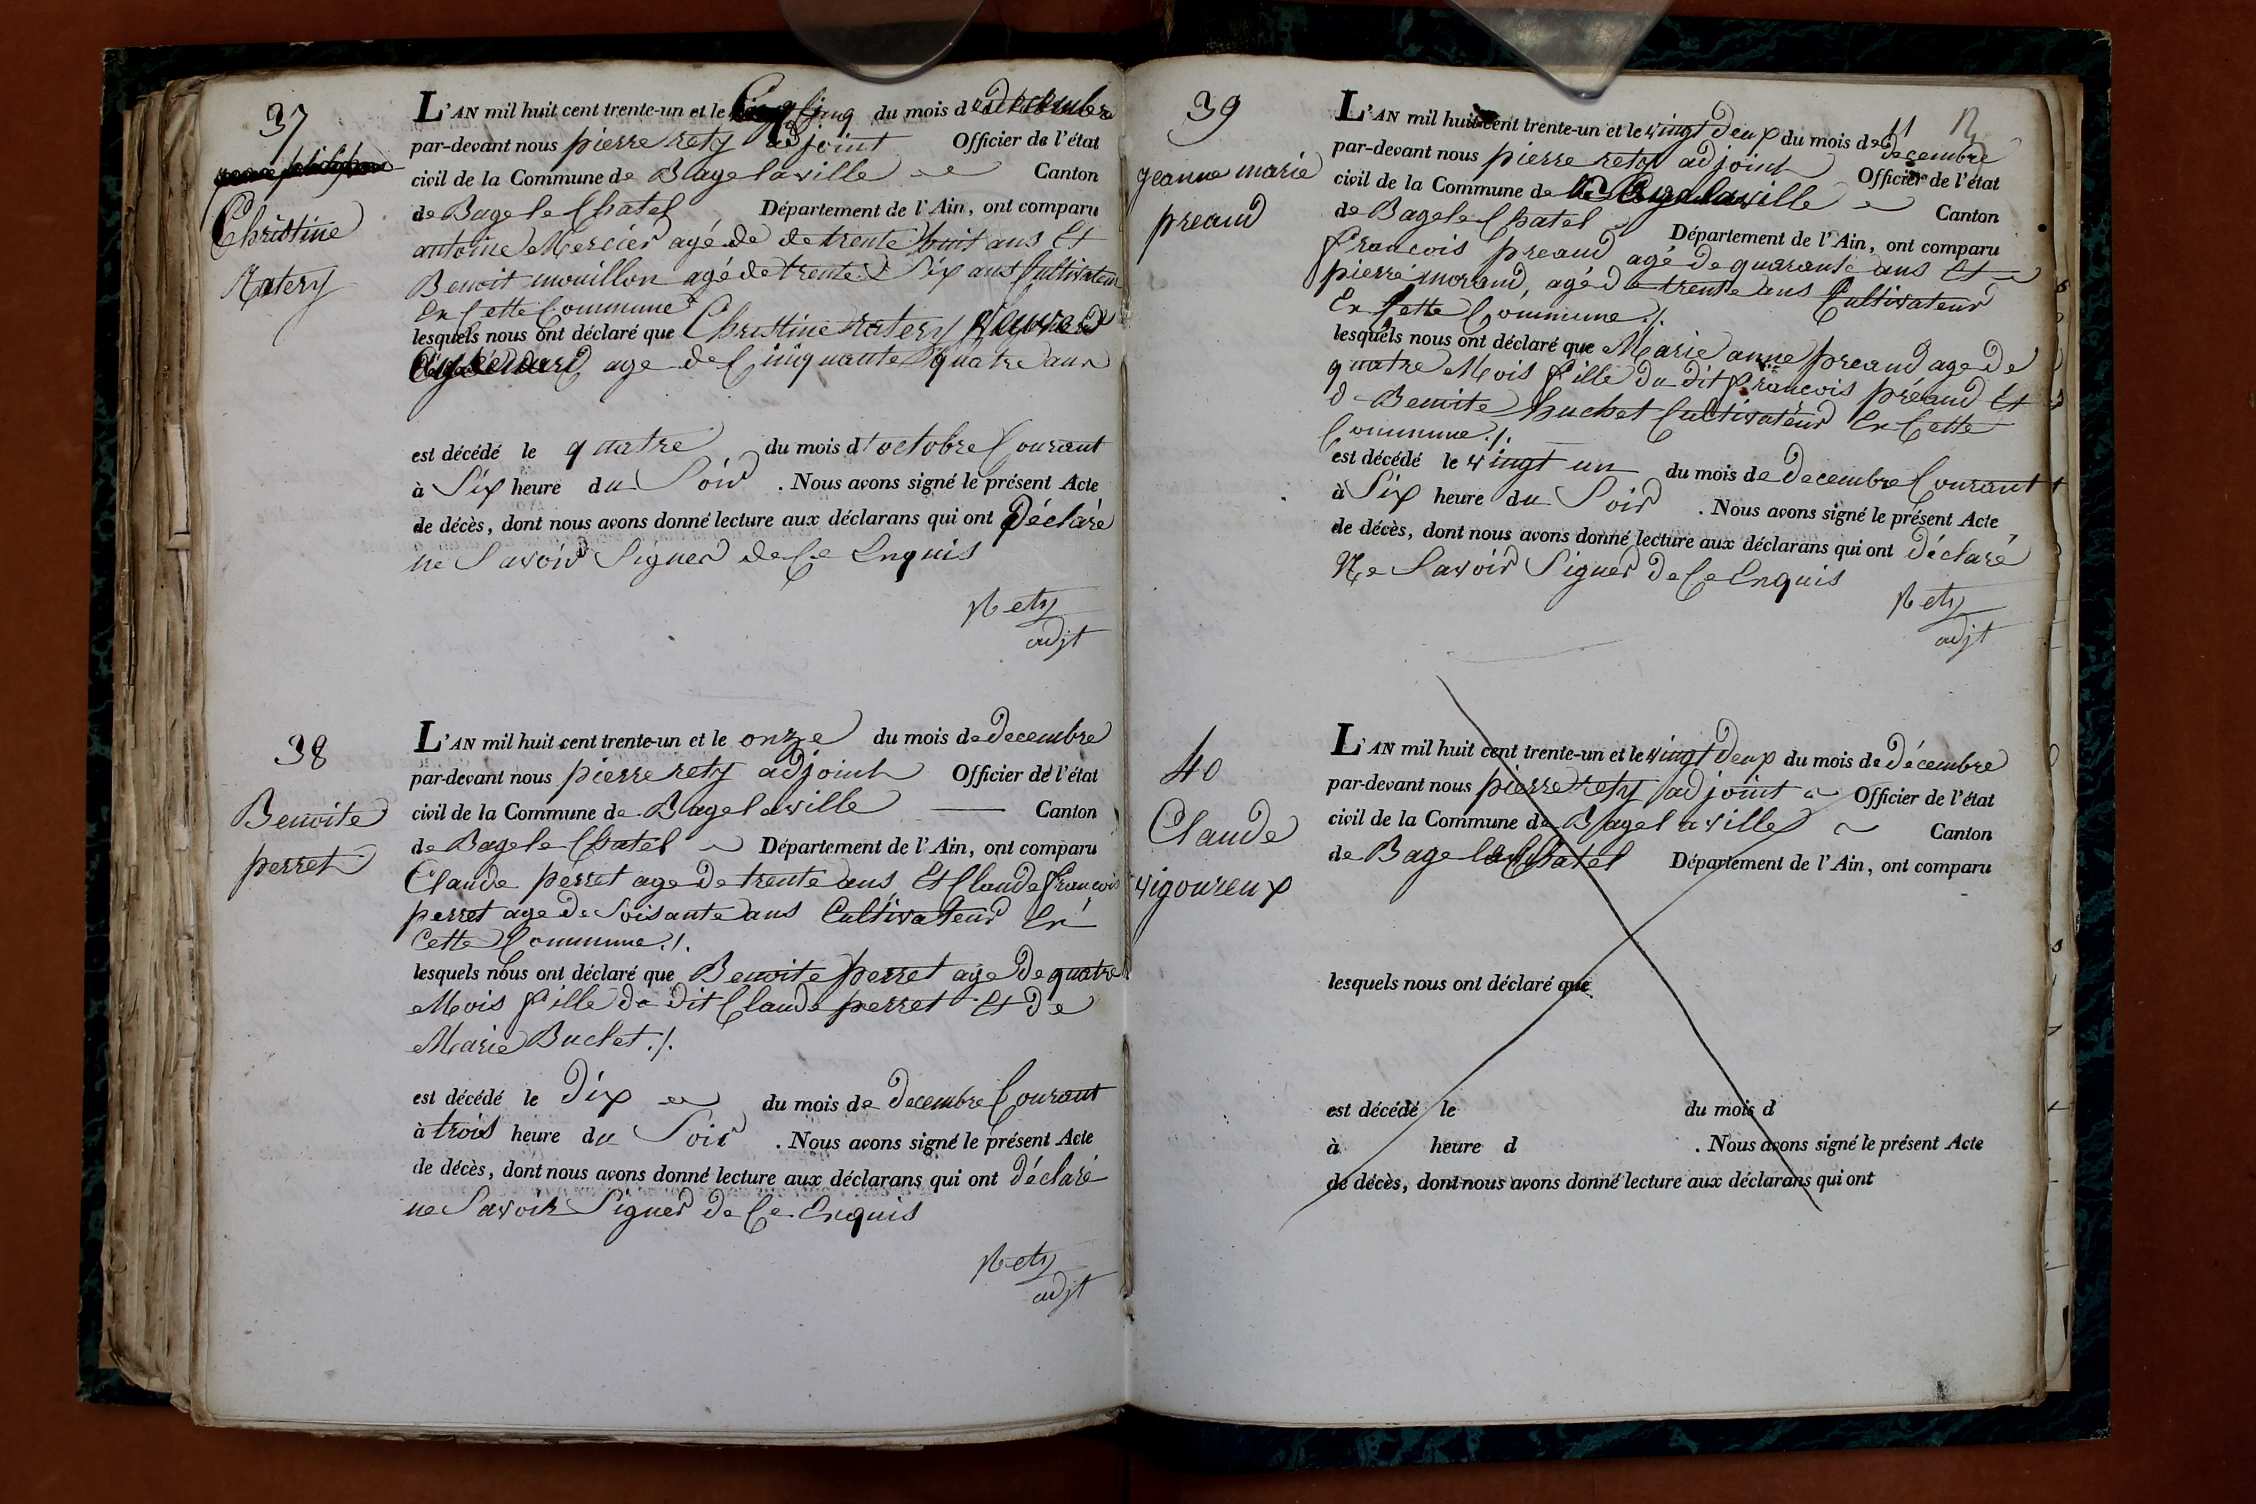 37
Christine
Ratery
L'AN mil huit cent trente-un et le Cinq du mois de
par-devant nous pierre rety adjoint Officier de l'état
civil de la Commune de Bagelaville Canton
de Bagele Chatel Département de l'Ain, ont comparu
antoine Mercier agé de de trente huit ans Et
Benoit mouillon agé de trente Six ans Cultivateur
En Cette Commune
lesquels nous ont déclaré que Christine ratery
age de Cinquante quatre ans
est décédé le quatre du mois d'octobre Courant
à Six heure du Soir . Nous avons signé le présent Acte
de décès, dont nous avons donné lecture aux déclarans qui ont Déclaré
ne Savoir Signer de Ce Enquis
Rety
adjt
38
Benoite
perret
L'AN mil huit cent trente-un et le onze du mois de decembre
par-devant nous pierre rety adjoint Officier de l'état
civil de la Commune de Bagelaville Canton
de Bagele Chatel Département de l'Ain, ont comparu
Claude perret age de trente ans Et Claude francois
perret age de Soisante ans Cultivateur En
Cette Commune ./.
lesquels nous ont déclaré que Benoite perret age de quatre
Mois fille du dit Claude perret Et de
Marie Buchet ./.
est décédé le Dix du mois de decembre Courant
à trois heure du Soir . Nous avons signé le présent Acte
de décès, dont nous avons donné lecture aux déclarans qui ont déclaré
ne Savoir Signer de Ce Enquis
Rety
adjt
39
jeanne marie
preaud
L'AN mil huit cent trente-un et le vingt deux du mois de decembre
par-devant nous pierre rety adjoint Officier de l'état
civil de la Commune de Bagelaville Canton
de Bagele Chatel Département de l'Ain, ont comparu
francois preaud agé de quarante ans Et
pierre morand, agé de trente ans Cultivateur
En Cette Commune ./.
lesquels nous ont déclaré que Marie anne preaud age de
quatre Mois fille du dit francois préaud Et
d Benoite buchet Cultivateur En Cette
Commune ./.
est décédé le vingt un du mois de decembre Courant
à Six heure du Soir . Nous avons signé le présent Acte
de décès, dont nous avons donné lecture aux déclarans qui ont déclaré
Ne Savoir Signer de Ce Enquis
Rety
adjt
40
Claude
vigoureux
L'AN mil huit cent trente-un et le vingt deux du mois de décembre
par-devant nous pierre rety adjoint Officier de l'état
civil de la Commune de Bagelaville Canton
de Bagele Chatel Département de l'Ain, ont comparu
lesquels nous ont déclaré que
est décédé le du mois d
à heure d . Nous avons signé le présent Acte
de décès, dont nous avons donné lecture aux déclarans qui ont